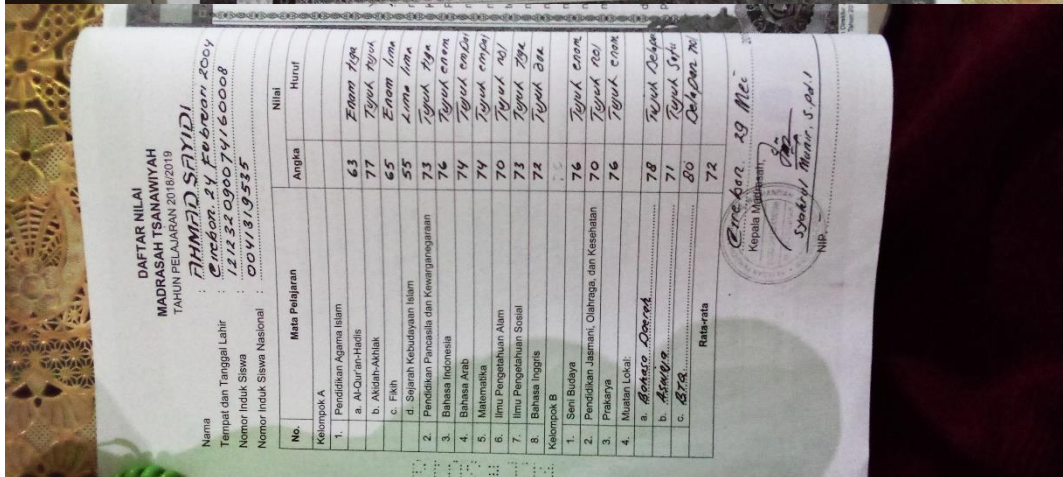 DAFTAR NILAI
MADRASAH TSANAWIYAH
TAHUN PELAJARAN 2018/2019
Nama : AHMAD SAYIDI
Tempat dan Tanggal Lahir : Cirebon. 24 Februari 2004
Nomor Induk Siswa : 121232090074160008
Nomor Induk Siswa Nasional : 0041319535
No. Mata Pelajaran Nilai
Angka Huruf
Kelompok A
1. Pendidikan Agama Islam
a. Al-Qur'an-Hadis 63 Enam tiga
b. Akidah-Akhlak 77 Tujuh tujuh
c. Fikih 65 Enam lima
d. Sejarah Kebudayaan Islam 55 Lima lima
2. Pendidikan Pancasila dan Kewarganegaraan 73 Tujuh tiga
3. Bahasa Indonesia 76 Tujuh enam
4. Bahasa Arab 74 Tujuh empat
5. Matematika 74 Tujuh empat
6. Ilmu Pengetahuan Alam 70 Tujuh nol
7. Ilmu Pengetahuan Sosial 73 Tujuh tiga
8. Bahasa Inggris 72 Tujuh dua
Kelompok B
1. Seni Budaya 76 Tujuh enam
2. Pendidikan Jasmani, Olahraga, dan Kesehatan 70 Tujuh nol
3. Prakarya 76 Tujuh enam
4. Muatan Lokal:
a. Bahasa Daerah 78 Tujuh Delapan
b. Aswaja 71 Tujuh Satu
c. BTQ 80 Delapan nol
Rata-rata 72
Cirebon. 29 Mei 20
Kepala Madrasah,
Syahrul Munir, S.Pd.I
NIP. -